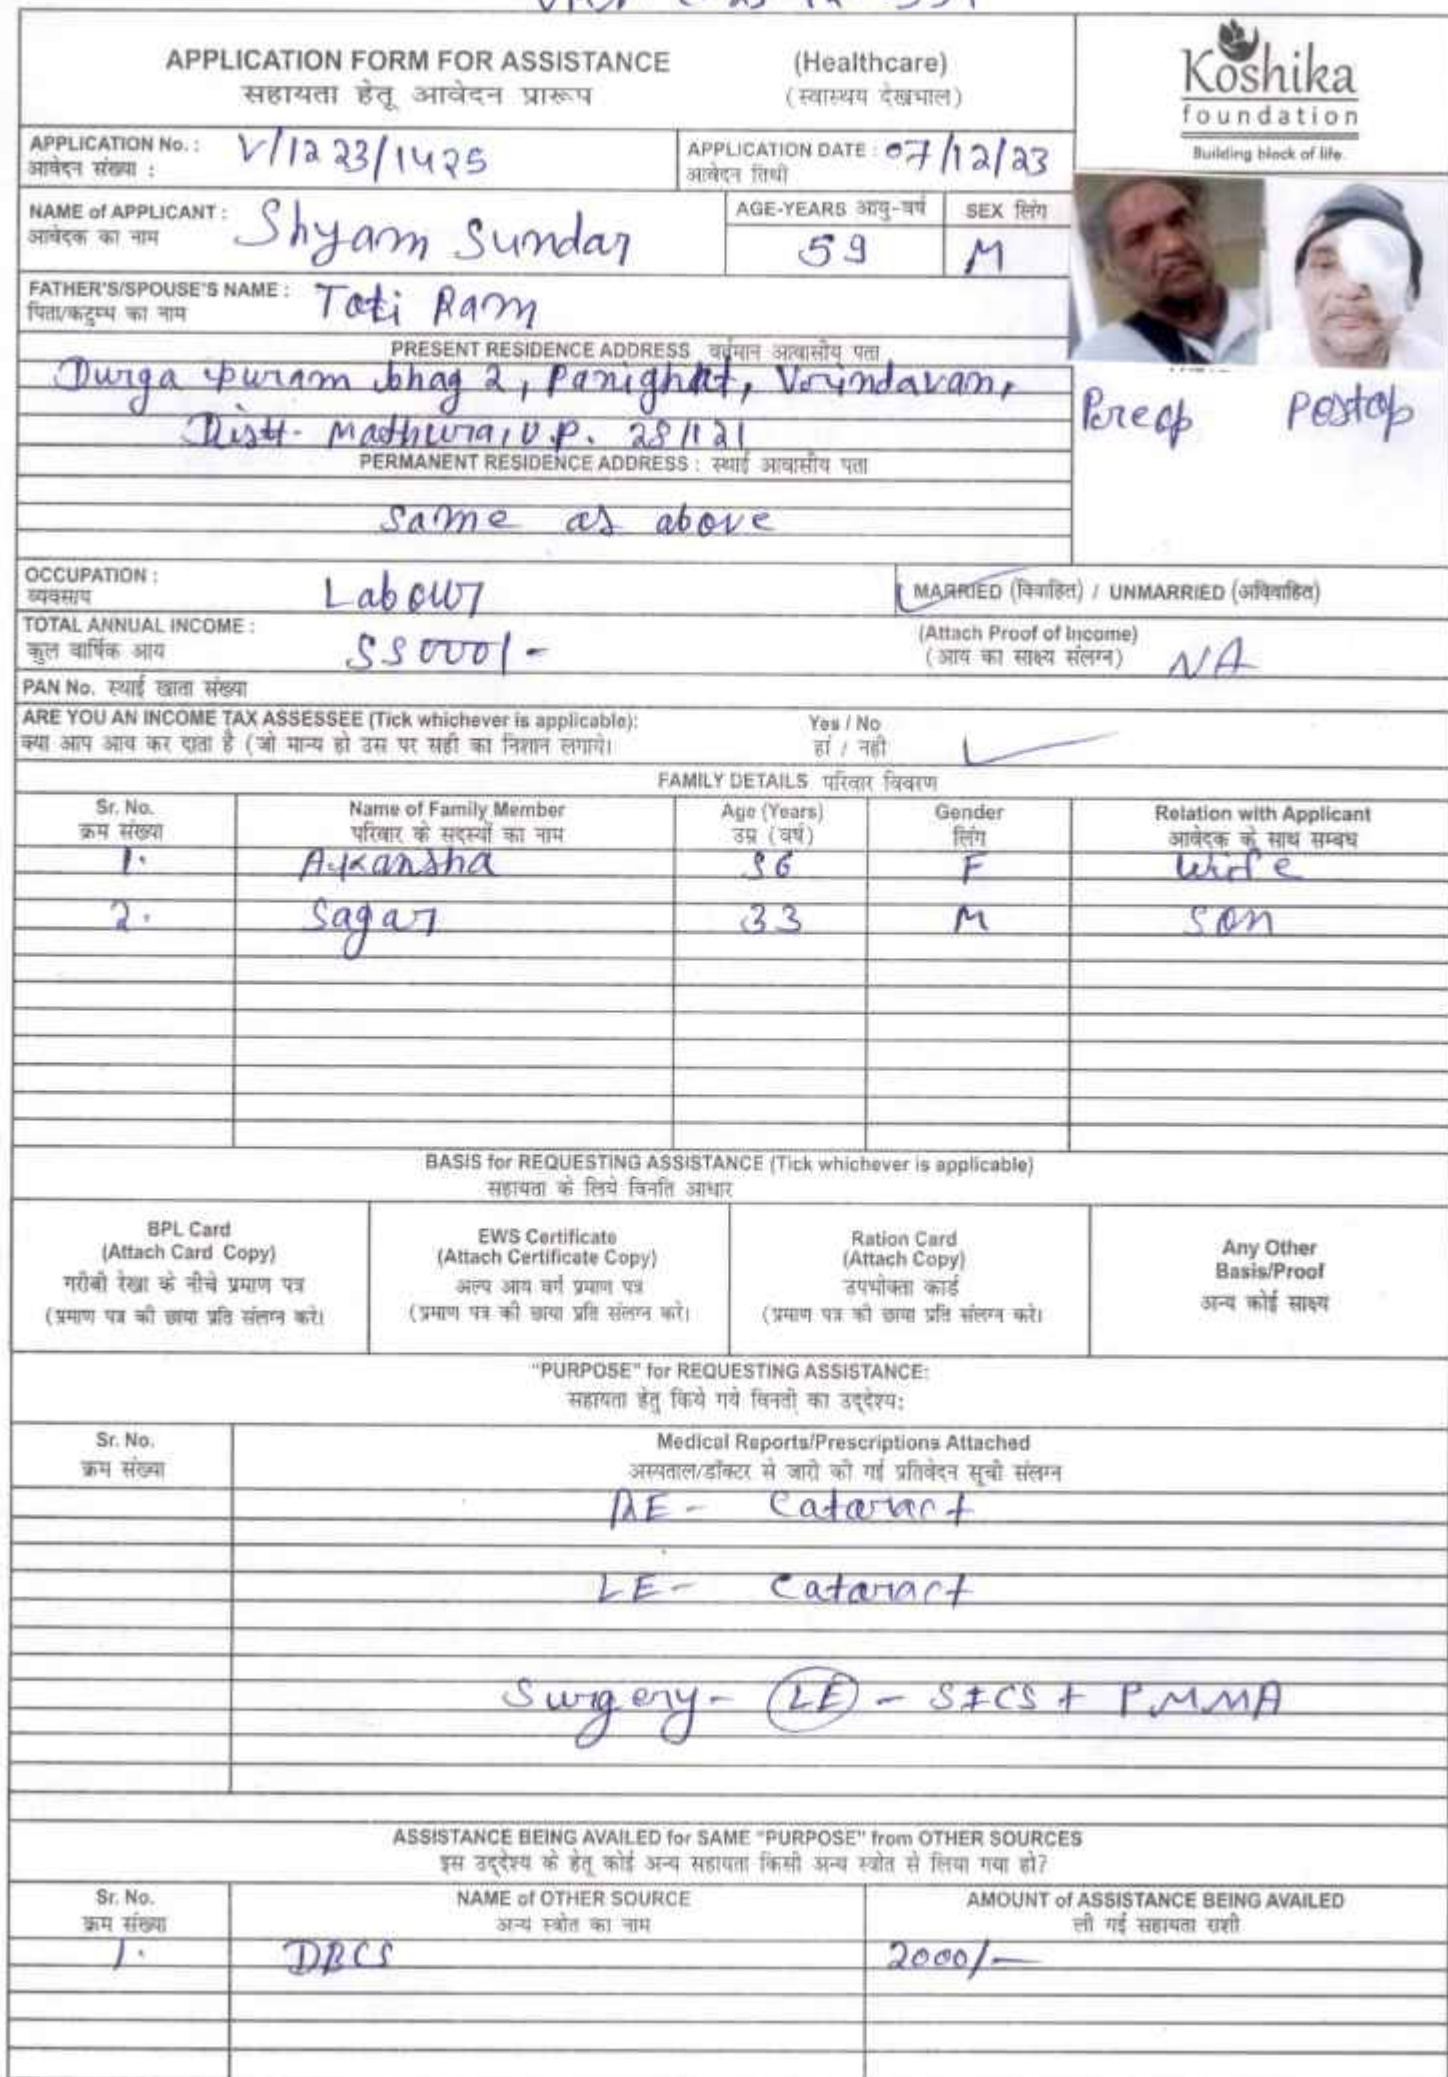 APPLICATION FORM FOR ASSISTANCE (Healthcare)
सहायता हेतू आवेदन प्रारूप (स्वास्थय देखभाल)
Koshika
foundation
Building block of life.
APPLICATION No. : V/1223/1425
आवेदन संख्या :
APPLICATION DATE : 07/12/23
आवेदन तिथी
NAME of APPLICANT : Shyam Sundar
आवेदक का नाम
AGE-YEARS आयु-वर्ष SEX लिंग
59 M
FATHER'S/SPOUSE'S NAME : Toti Ram
पिता/कटुम्ध का नाम
PRESENT RESIDENCE ADDRESS वर्तमान आवासीय पता
Durga puram bhag 2, Panighat, Vrindavan,
Distt- Mathura, U.P. 281121
Preop Postop
PERMANENT RESIDENCE ADDRESS : स्थाई आवासीय पता
Same as above
OCCUPATION : Labour
व्यवसाय
MARRIED (विवाहित) / UNMARRIED (अविवाहित)
TOTAL ANNUAL INCOME : 55000/-
कुल वार्षिक आय
(Attach Proof of Income) NA
(आय का साक्ष्य संलग्न)
PAN No. स्थाई खाता संख्या
ARE YOU AN INCOME TAX ASSESSEE (Tick whichever is applicable): Yes / No
क्या आप आय कर दाता है (जो मान्य हो उस पर सही का निशान लगाये। हां / नही
FAMILY DETAILS परिवार विवरण
Sr. No. Name of Family Member Age (Years) Gender Relation with Applicant
क्रम संख्या परिवार के सदस्यों का नाम उम्र (वर्ष) लिंग आवेदक के साथ सम्बध
1. Akansha 56 F wife
2. Sagar 33 M son
BASIS for REQUESTING ASSISTANCE (Tick whichever is applicable)
सहायता के लिये विनति आधार
BPL Card
(Attach Card Copy)
गरीबी रेखा के नीचे प्रमाण पत्र
(प्रमाण पत्र की छाया प्रति संलग्न करे।
EWS Certificate
(Attach Certificate Copy)
अल्प आय वर्ग प्रमाण पत्र
(प्रमाण पत्र की छाया प्रति संलग्न करे।
Ration Card
(Attach Copy)
उपभोक्ता कार्ड
(प्रमाण पत्र की छाया प्रति संलग्न करे।
Any Other
Basis/Proof
अन्य कोई साक्ष्य
"PURPOSE" for REQUESTING ASSISTANCE:
सहायता हेतु किये गये विनती का उद्देश्य:
Sr. No. Medical Reports/Prescriptions Attached
क्रम संख्या अस्पताल/डॉक्टर से जारी की गई प्रतिवेदन सूची संलग्न
RE - Cataract
LE - Cataract
Surgery - LE - SICS + PMMA
ASSISTANCE BEING AVAILED for SAME "PURPOSE" from OTHER SOURCES
इस उद्देश्य के हेतू कोई अन्य सहायता किसी अन्य स्त्रोत से लिया गया हो?
Sr. No. NAME of OTHER SOURCE AMOUNT of ASSISTANCE BEING AVAILED
क्रम संख्या अन्य स्त्रोत का नाम ली गई सहायता राशी
1. DBCS 2000/-